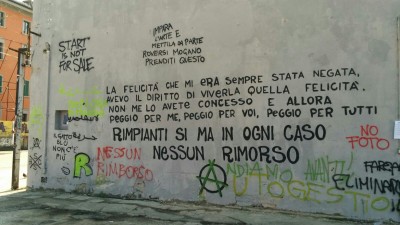 IMPARA
L'ARTE E
METTILA DA PARTE
PRENDITI QUESTO
START
IS NOT
FOR SALE
LA FELICITÀ CHE MI ERA SEMPRE STATA NEGATA,
AVEVO IL DIRITTO DI VIVERLA QUELLA FELICITÀ.
NON ME LO AVETE CONCESSO E ALLORA
PEGGIO PER ME, PEGGIO PER VOI, PEGGIO PER TUTTI
RIMPIANTI SI MA IN OGNI CASO
NESSUN RIMORSO
NO
FOTO
IL GATTO
BLU
NON C'È
PIÙ
R
NESSUN
RIMBORSO
ANDIAMO AVANTI
AUTOGESTIO
ELIMINARE